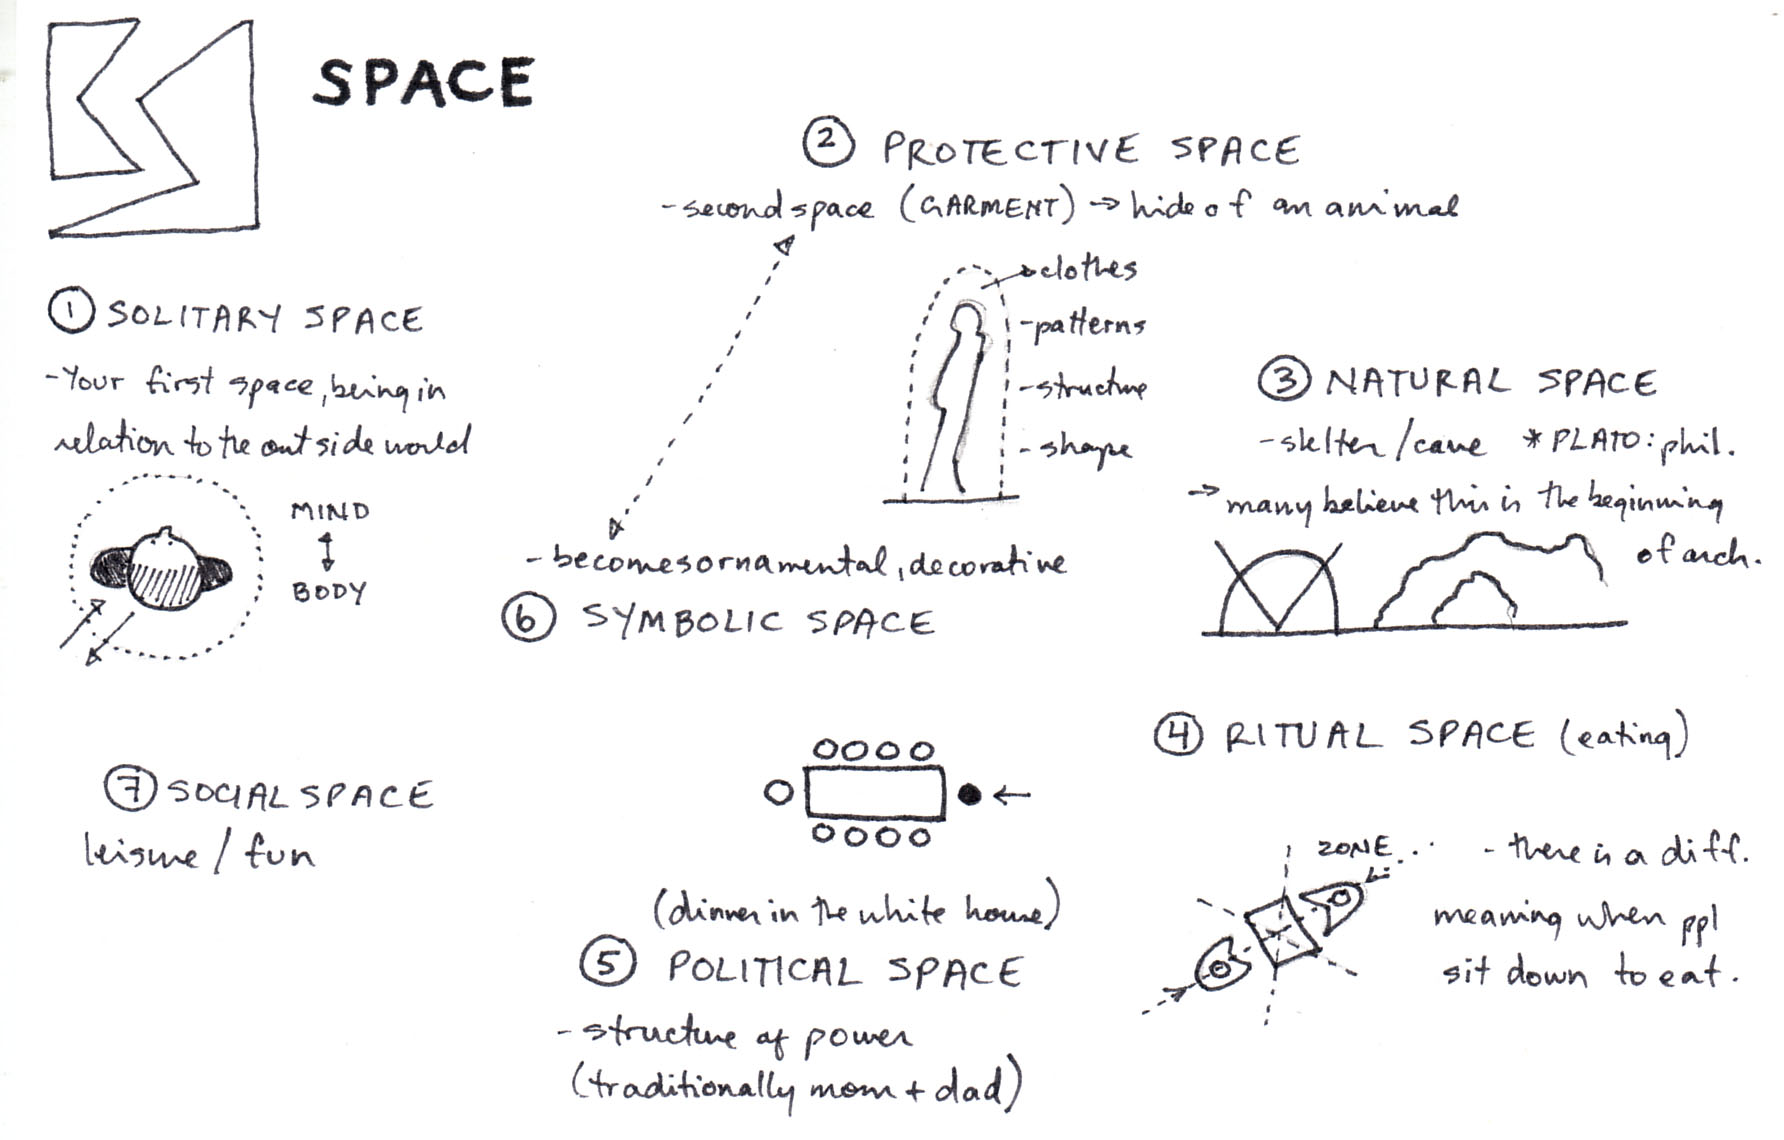 SPACE
① SOLITARY SPACE
- Your first space, being in
relation to the outside world
MIND
BODY
② PROTECTIVE SPACE
- second space (GARMENT) → hide of an animal
clothes
- patterns
- structure
- shape
③ NATURAL SPACE
- shelter / cave * PLATO: phil.
→ many believe this is the beginning
of arch.
④ RITUAL SPACE (eating)
ZONE...
- there is a diff.
meaning when ppl
sit down to eat.
(dinner in the white house)
⑤ POLITICAL SPACE
- structure of power
(traditionally mom + dad)
- becomes ornamental, decorative
⑥ SYMBOLIC SPACE
⑦ SOCIAL SPACE
leisure / fun